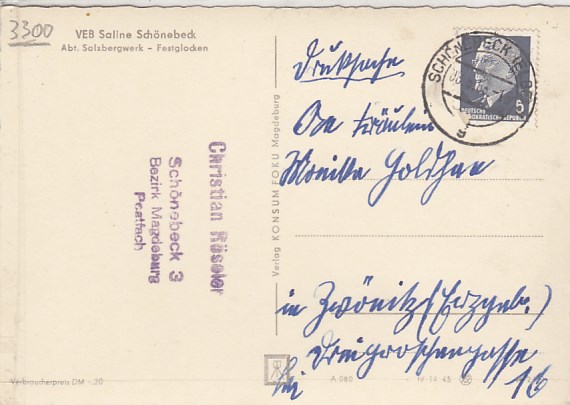 3300
VEB Saline Schönebeck
Abt. Salzbergwerk – Festglocken
Christian Röseler
Schönebeck 3
Bezirk Magdeburg
Postfach
Verlag KONSUM FOKU Magdeburg
SCHÖNEBECK (ELBE)
5
DEUTSCHE
DEMOKRATISCHE REPUBLIK
Drucksache
Fräulein
Monika
in Zwönitz (Erzgeb.)
Dreigroschengasse
16
Verbraucherpreis DM -.20
A 080